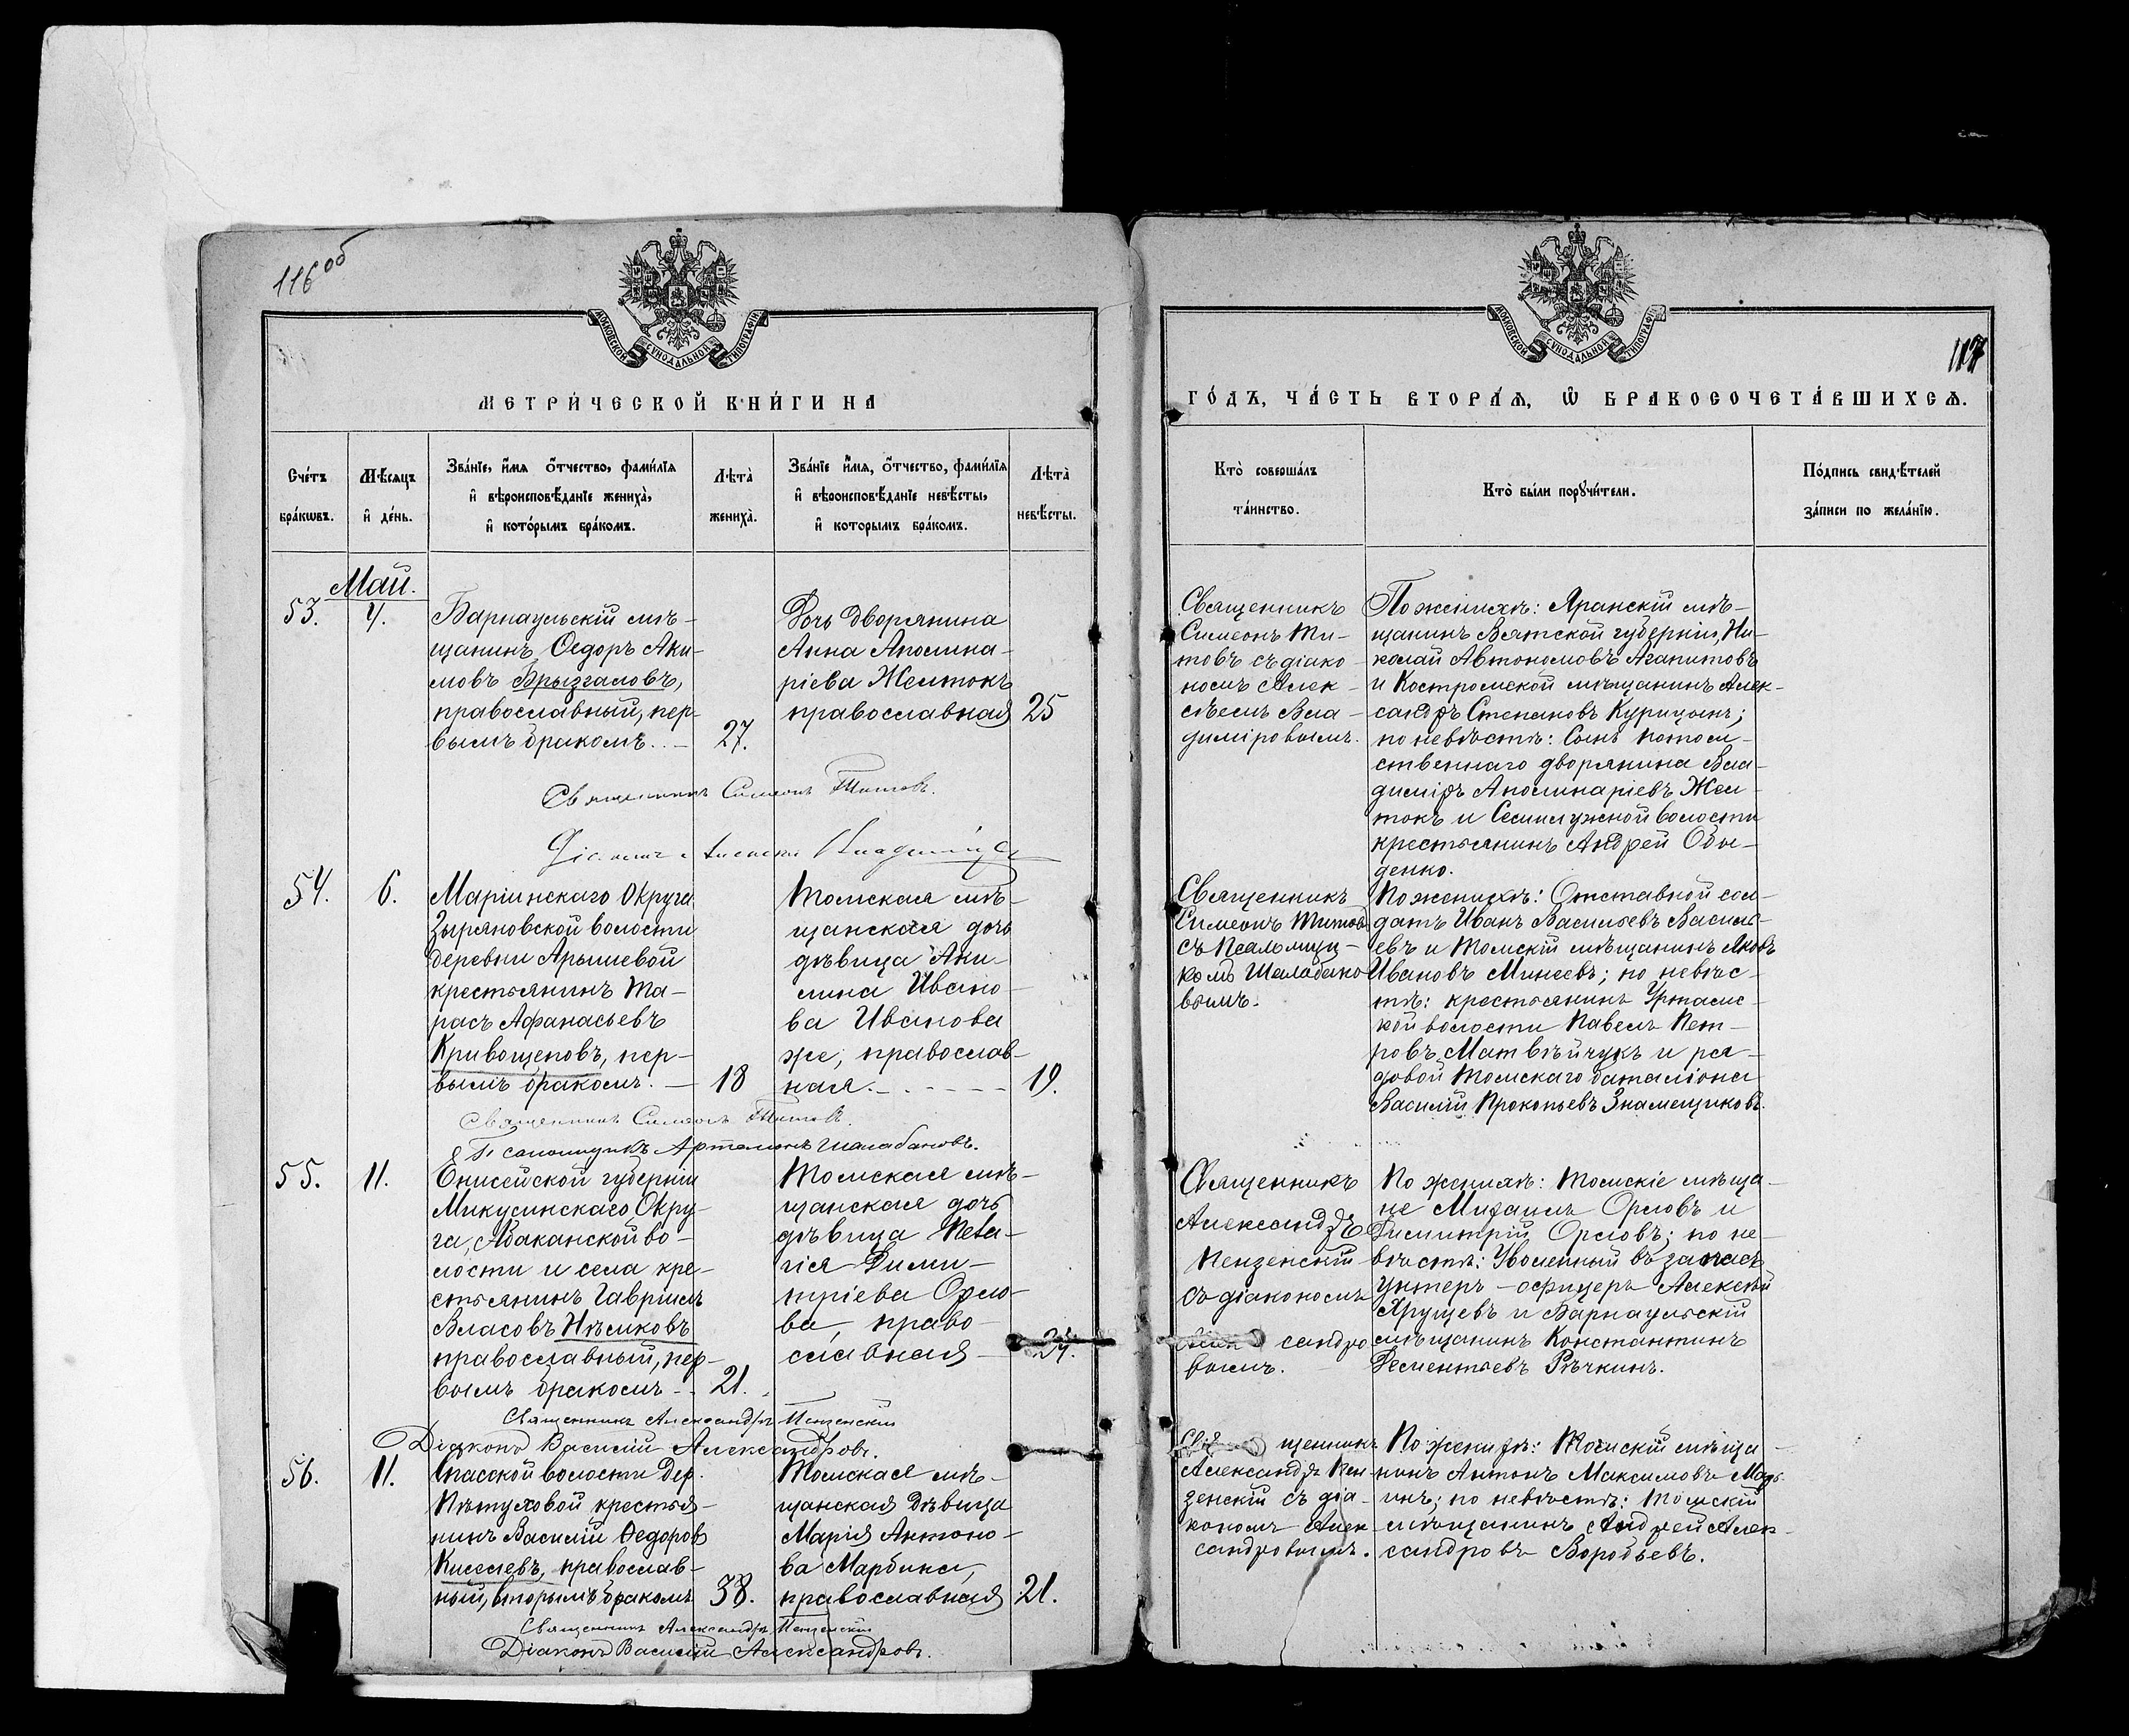 116 об
МОСКОВСКОЙ СѴНОДАЛЬНОЙ ТИПОГРАФІИ
МЕТРИ́ЧЕСКОЙ КНИ́ГИ НА
Сче́тъ бра́кѡвъ.
Мѣ́сяцъ и҆ де́нь.
Зва́нїе, и҆́мя ѻ҆́тчество, фами́лїя
и҆ вѣроисповѣ́данїе женихà,
и҆ кото́рымъ бра́комъ.
Лѣ́та̀ женихà.
Зва́нїе и҆́мя, ѻ҆́тчество, фами́лїя
и҆ вѣроисповѣ́данїе невѣ́сты,
и҆ которымъ бра́комъ.
Лѣ́та̀ невѣ́сты.
Май.
53.
4.
Барнаульскій мѣ-
щанинъ Ѳедоръ Аки-
мовъ Брызгаловъ,
православный, пер-
вымъ бракомъ. -
27.
Дочь дворянина
Анна Аполина-
ріева Желтокъ
православная
25
Священникъ Симеонъ Титовъ.
54.
6.
Маріинскаго Округа
Зыряновской волости
деревни Арышевой
крестьянинъ Та-
расъ Афанасьевъ
Кривощеповъ, пер-
вымъ бракомъ. -
18
Томская мѣ-
щанская дочь
дѣвица Аки-
лина Ивано-
ва Иванова
же, православ-
ная. - - - -
19.
Священникъ Симеонъ Титовъ.
Псаломщикъ Артамонъ Шалабановъ.
55.
11.
Енисейской губерніи
Минусинскаго Окру-
га, Абаканской во-
лости и села кре-
стьянинъ Гавріилъ
Власовъ Нѣмковъ
православный, пер-
вымъ бракомъ - -
21.
Томская мѣ-
щанская дочь
дѣвица Пела-
гія Дими-
тріева Орло-
ва, право-
славная -
24.
Священникъ Александръ Пензенскій
Діаконъ Василій Александровъ.
56.
11.
Спасской волости дер.
Пѣтуховой крестья-
нинъ Василій Ѳедоровъ
Киселевъ, православ-
ный, вторымъ бракомъ
38.
Томская мѣ-
щанская дѣвица
Марія Антоно-
ва Марбина,
православная
21.
Священникъ Александръ Пензенскій
Діаконъ Василій Александровъ.
МОСКОВСКОЙ СѴНОДАЛЬНОЙ ТИПОГРАФІИ
117
ГО́ДЪ, ЧА́СТЬ ВТОРА́Я, Ѽ БРАКОСОЧЕТА́ВШИХСЯ.
Кто̀ соверша́лъ
та́инство.
Кто̀ бы́ли порꙋчи́тели.
По́дпись свидѣ́телей
за́писи по жела́нїю.
Священникъ
Симеонъ Ти-
товъ съ діако-
номъ Алек-
сѣемъ Вла-
диміровымъ.
По женихѣ: Яранскій мѣ-
щанинъ Вятской губерніи, Ни-
колай Автономовъ Агапитовъ
и Костромской мѣщанинъ Алек-
сандръ Степановъ Курицынъ;
по невѣстѣ: Сынъ потом-
ственнаго дворянина Вла-
диміръ Аполинаріевъ Жел-
токъ и Семилужной волости
крестьянинъ Андрей Обы-
денко.
Священникъ
Симеонъ Титовъ
съ Псаломщи-
комъ Шалабано-
вымъ.
По женихѣ: Отставной сол-
датъ Иванъ Васильевъ Василь-
евъ и Томскій мѣщанинъ Яковъ
Ивановъ Минеевъ; по невѣс-
тѣ: крестьянинъ Уртамс-
кой волости Павелъ Пет-
ровъ Матвѣйчукъ и ря-
довой Томскаго баталіона
Василій Прокопьевъ Знаменщиковъ.
Священникъ
Александръ
Пензенскій
съ діакономъ
Алек сандро
вымъ.
По женихѣ: Томскіе мѣща-
не Михаилъ Орловъ и
Димитрій Орловъ; по не-
вѣстѣ: Уволенный въ запасъ
Унтеръ-офицеръ Алексѣй
Хрущевъ и Барнаульскій
мѣщанинъ Константинъ
Дементьевъ Рѣчкинъ.
Свя щенникъ
Александръ Пен-
зенскій съ діа-
кономъ Алек-
сандровымъ.
По женихѣ: Томскій мѣща-
нинъ Антонъ Максимовъ
по невѣстѣ: Томскій
мѣщанинъ Андрей Алек-
сандровъ Воробьевъ.